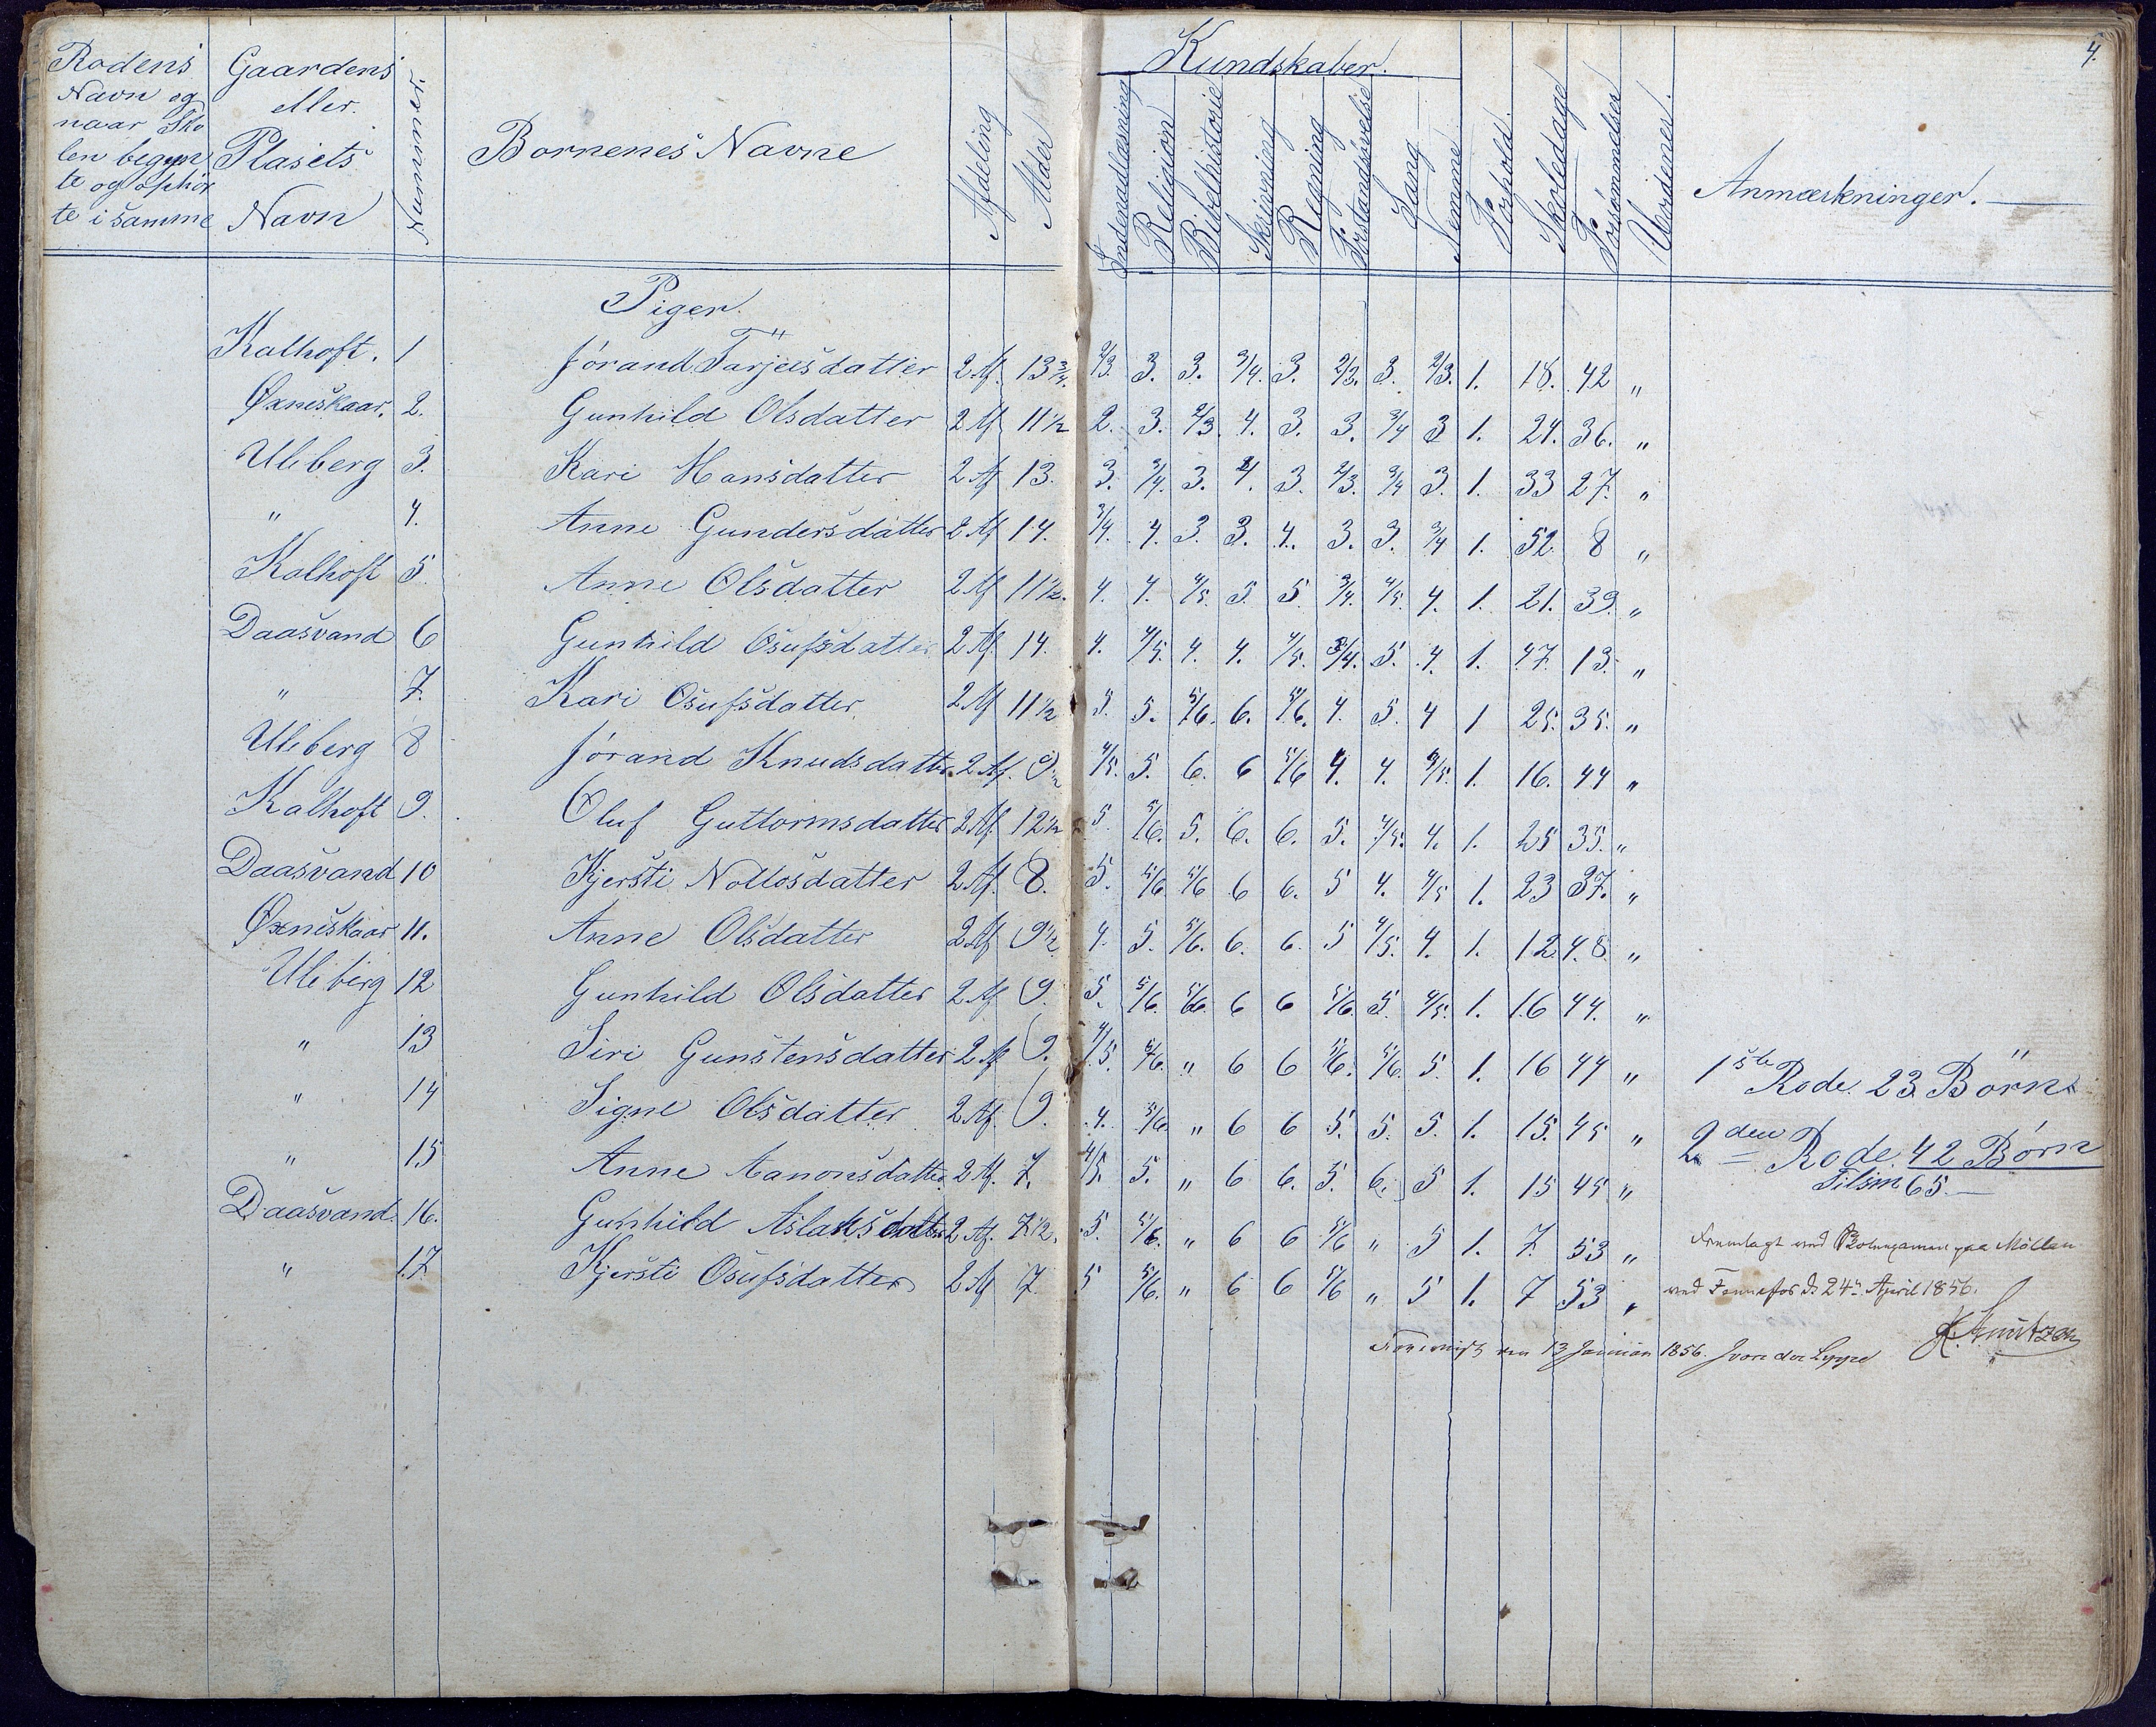 4.
Rodens Navn og naar Skolen begyn te og ophör te i samme
Gaardens eller Plasets Navn
Nummer.
Bornenes Navne
Afdeling
Alder
Kundskaber.
Indenadlæsning
Religion
Bibelhistorie
Skrivning
Regning
Forstandsøvelse
Sang
Nemme
Forhold.
Skoledage
Forsømmelser
Uordener.
Anmærkninger.
Piger.
Kalhoft. 1 Jórand Tarjeisdatter 2 Af. 13 3/4. 2/3. 3. 3. 3/4. 3. 2/3. 3. 2/3. 1. 18. 42 "
Øxneskaar. 2. Gunhild Olsdatter 2 Af 11 1/2 2. 3. 2/3. 4. 3. 3. 3/4 3 1. 24. 36. "
Uleberg 3. Kari Hansdatter 2 Af 13. 3. 3/4. 3. 4. 3. 2/3. 3/4 3. 1. 33 27. "
" 4. Anne Gundersdatter 2 Af 14. 3/4. 4. 3. 3. 4. 3. 3. 3/4 1. 52. 8 "
Kalhoft 5 Anne Olsdatter 2 Af 11 1/2. 4. 4. 4/5. 5. 5 3/4. 4/5. 4. 1. 21. 39. "
Daasvand 6 Gunhild Osufsdatter 2 Af. 14. 4. 4/5. 4. 4. 4/5. 3/4. 5. 4. 1. 47. 13. "
" 7. Kari Osufsdatter. 2 Af 11 1/2 5. 5. 5/6. 6. 5/6. 4. 5. 4 1 25. 35. "
Uleberg 8 Jórand Knudsdatter 2 Af. 9 1/2 4/5. 5. 6. 6 5/6 4. 4. 4/5. 1. 16. 44 "
Kalhoft 9. Oluf Guttormsdatter 2 Af. 12 1/2 5. 5/6. 5. 6. 6. 5. 4/5. 4. 1. 25 35. "
Daasvand 10 Kjersti Nottosdatter 2 Af. 8. 5. 5/6. 5/6 6 6. 5 4. 4/5 1. 23 37. "
Øxneskaar 11. Anne Olsdatter 2 Af 9 1/2 4. 5. 5/6. 6. 6. 5 4/5. 4. 1. 12 48. "
Uleberg 12 Gunhild Olsdatter 2 Af 9. 5. 5/6. 5/6. 6 6 5/6. 5. 4/5. 1. 16 44. "
" 13 Siri Gunstensdatter 2 Af 9. 4/5. 5/6. " 6 6 5/6. 5/6. 5. 1. 16 44 "
" 14 Signe Olsdatter 2 Af. 9. 4. 5/6. " 6 6 5. 5. 5. 1. 15. 45 "
" 15 Anne Aanonsdatter 2 Af. 7. 4/5. 5. " 6 6. 5. 6. 5 1. 15 45 "
Daasvand. 16. Gunhild Aslaksdatter 2 Af. 7 1/2. 5. 5/6. " 6 6 5/6 " 5 1. 7. 53 "
" 17. Kjersti Osufsdatter 2 Af 7. 5 5/6. " 6 6 5/6 " 5 1. 7 53 "
1ste Rode. 23 Börn
2den Rode 42 Börn
Tilsm 65
Fremlagt ved paa Möllen
ved Fennefos d. 24n April 1856.
den 13 1856.